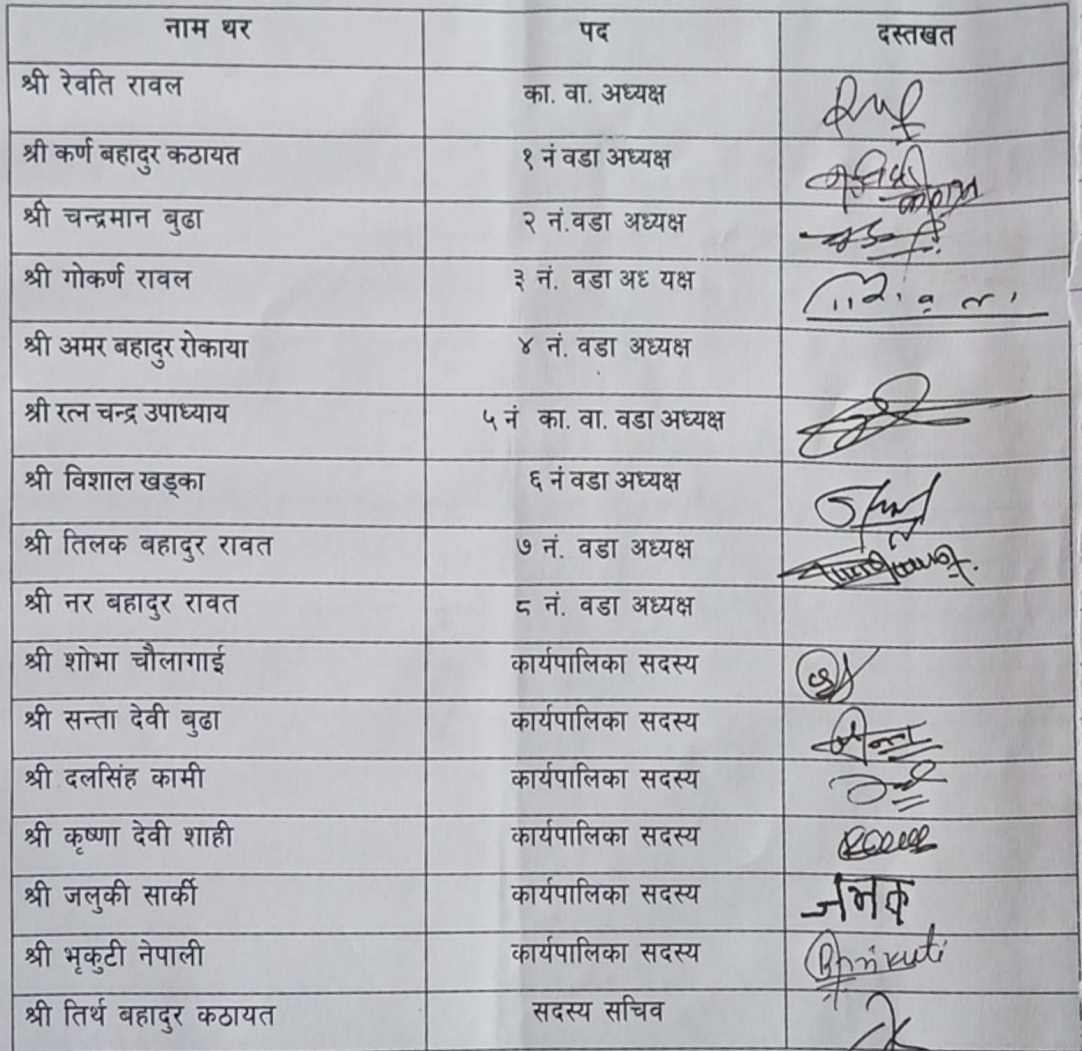 नाम थर पद दस्तखत
श्री रेवति रावल का. वा. अध्यक्ष
श्री कर्ण बहादुर कठायत १ नं वडा अध्यक्ष
श्री चन्द्रमान बुढा २ नं.वडा अध्यक्ष
श्री गोकर्ण रावल ३ नं. वडा अध यक्ष
श्री अमर बहादुर रोकाया ४ नं. वडा अध्यक्ष
श्री रत्न चन्द्र उपाध्याय ५ नं का. वा. वडा अध्यक्ष
श्री विशाल खड्का ६ नं वडा अध्यक्ष
श्री तिलक बहादुर रावत ७ नं. वडा अध्यक्ष
श्री नर बहादुर रावत ८ नं. वडा अध्यक्ष
श्री शोभा चौलागाई कार्यपालिका सदस्य
श्री सन्ता देवी बुढा कार्यपालिका सदस्य
श्री दलसिंह कामी कार्यपालिका सदस्य
श्री कृष्णा देवी शाही कार्यपालिका सदस्य
श्री जलुकी सार्की कार्यपालिका सदस्य
श्री भृकुटी नेपाली कार्यपालिका सदस्य Bhrikuti
श्री तिर्थ बहादुर कठायत सदस्य सचिव